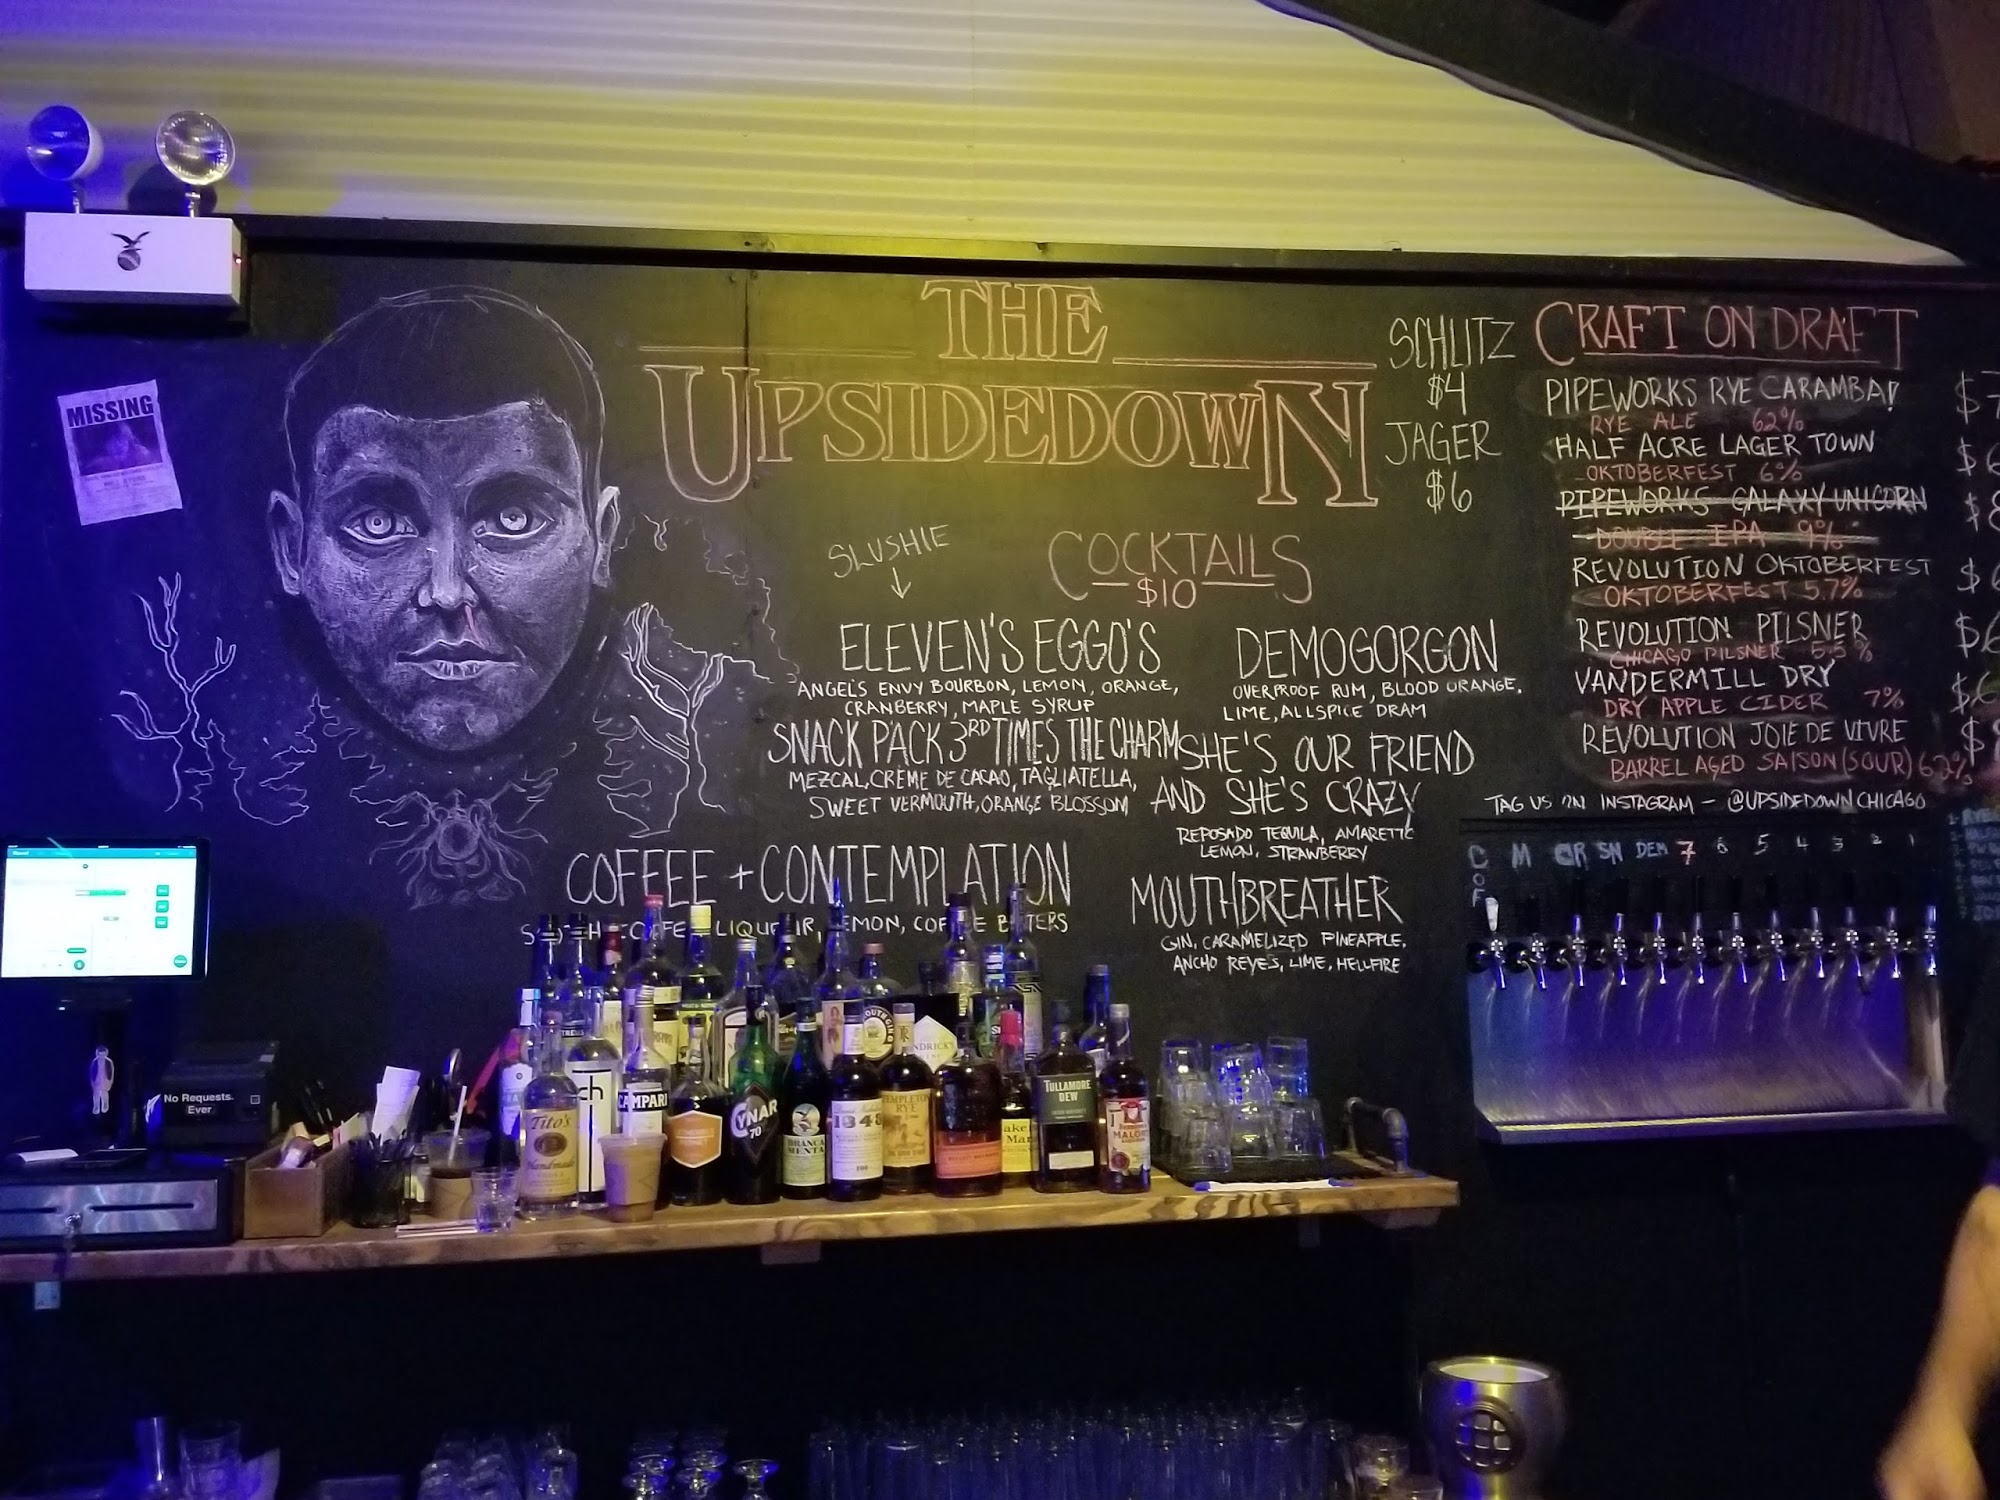 MISSING
THE
UPSIDEDOWN
SCHLITZ
$4
JAGER
$6
SLUSHIE
COCKTAILS
$10
ELEVEN'S EGGO'S
ANGEL'S ENVY BOURBON, LEMON, ORANGE,
CRANBERRY, MAPLE SYRUP
SNACK PACK 3RD TIMES THE CHARM
MEZCAL, CREME DE CACAO, TAGLIATELLA,
SWEET VERMOUTH, ORANGE BLOSSOM
COFFEE + CONTEMPLATION
LEMON,
DEMOGORGON
OVERPROOF RUM, BLOOD ORANGE,
LIME, ALLSPICE DRAM
SHE'S OUR FRIEND
AND SHE'S CRAZY
REPOSADO TEQUILA, AMARETTO
LEMON, STRAWBERRY
MOUTHBREATHER
GIN, CARAMELIZED PINEAPPLE,
ANCHO REYES, LIME, HELLFIRE
CRAFT ON DRAFT
PIPEWORKS RYE CARAMBA!
RYE ALE 62%
HALF ACRE LAGER TOWN
OKTOBERFEST 6%
PIPEWORKS GALAXY UNICORN
DOUBLE IPA 9%
REVOLUTION OKTOBERFEST
OKTOBERFEST 5.7%
REVOLUTION PILSNER
CHICAGO PILSNER 5.5%
VANDERMILL DRY
DRY APPLE CIDER 7%
REVOLUTION JOIE DE VIVRE
BARREL AGED SAISON (SOUR) 62%
TAG US ON INSTAGRAM - @UPSIDEDOWNCHICAGO
M CR SN DEM 7 6 5 4 3 2 1
No Requests.
Ever
Tito's
Handmade
CAMPARI
CYNAR
70
BRANCA
MENTA
1843
TEMPLETON
RYE
TULLAMORE
DEW